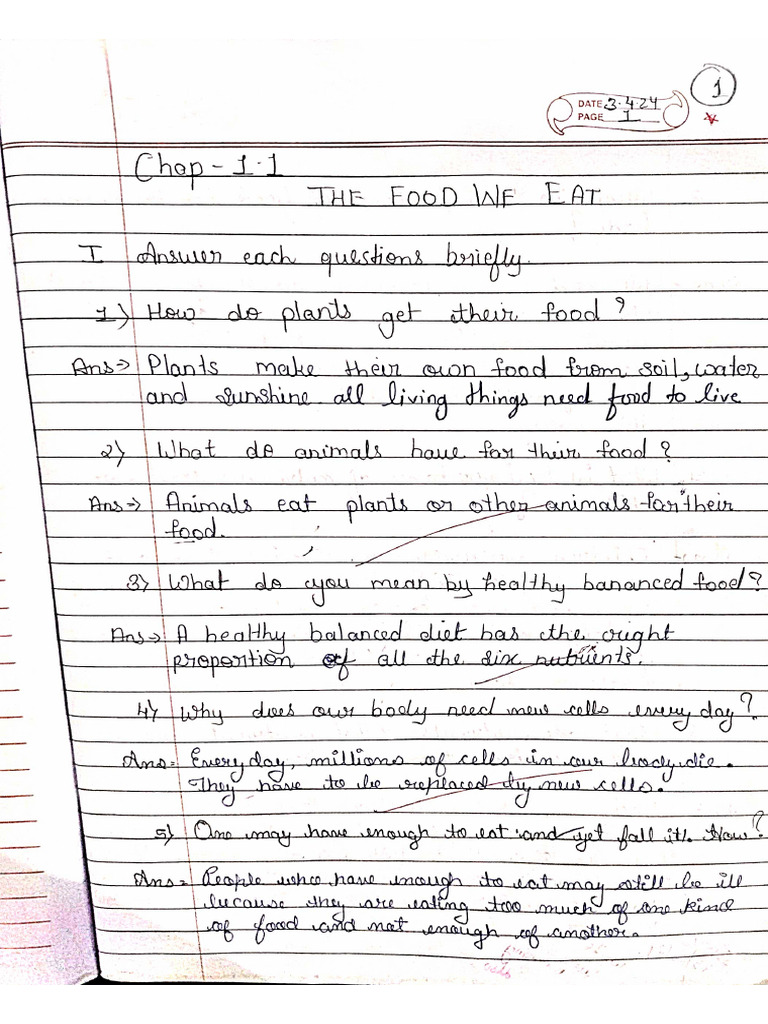 1
DATE 3.4.24
PAGE 1
Chap - 1.1
THE FOOD WE EAT
I Answer each questions briefly.
1) How do plants get their food?
Ans→ Plants make their own food from soil, water
and sunshine all living things need food to live
2) What do animals have for their food?
Ans→ Animals eat plants or other animals for their
food.
3) What do you mean by healthy bananced food?
Ans→ A healthy balanced diet has the right
proportion of all the six nutrients.
4) Why does our body need new cells every day?
Ans= Everyday, millions of cells in our body die.
They have to be replaced by new cells.
5) One may have enough to eat and yet fall ill. How?
Ans= People who have enough to eat may still be ill
because they are eating too much of one kind
of food and not enough of another.